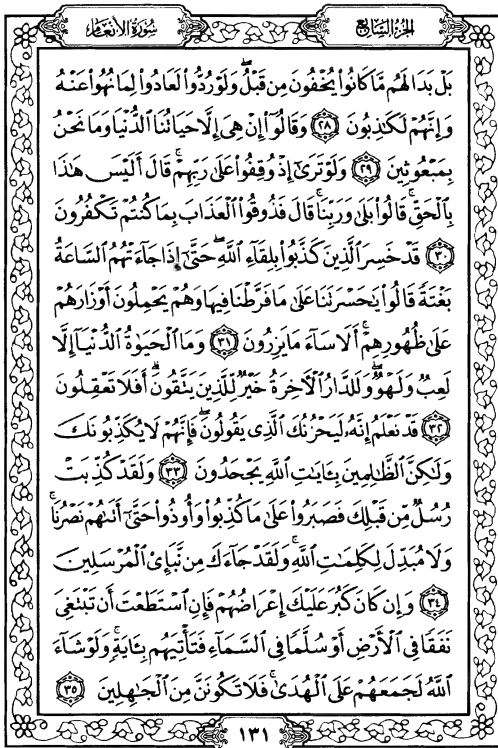 سورة الأنعام
الجزء السابع
بَلْ بَدَا لَهُم مَّا كَانُوا۟ يُخْفُونَ مِن قَبْلُ ۖ وَلَوْ رُدُّوا۟ لَعَادُوا۟ لِمَا نُهُوا۟ عَنْهُ
وَإِنَّهُمْ لَكَـٰذِبُونَ ﴿٢٨﴾ وَقَالُوٓا۟ إِنْ هِىَ إِلَّا حَيَاتُنَا ٱلدُّنْيَا وَمَا نَحْنُ
بِمَبْعُوثِينَ ﴿٢٩﴾ وَلَوْ تَرَىٰٓ إِذْ وُقِفُوا۟ عَلَىٰ رَبِّهِمْ ۚ قَالَ أَلَيْسَ هَـٰذَا
بِٱلْحَقِّ ۚ قَالُوا۟ بَلَىٰ وَرَبِّنَا ۚ قَالَ فَذُوقُوا۟ ٱلْعَذَابَ بِمَا كُنتُمْ تَكْفُرُونَ
﴿٣٠﴾ قَدْ خَسِرَ ٱلَّذِينَ كَذَّبُوا۟ بِلِقَآءِ ٱللَّهِ ۖ حَتَّىٰٓ إِذَا جَآءَتْهُمُ ٱلسَّاعَةُ
بَغْتَةً قَالُوا۟ يَـٰحَسْرَتَنَا عَلَىٰ مَا فَرَّطْنَا فِيهَا وَهُمْ يَحْمِلُونَ أَوْزَارَهُمْ
عَلَىٰ ظُهُورِهِمْ ۚ أَلَا سَآءَ مَا يَزِرُونَ ﴿٣١﴾ وَمَا ٱلْحَيَوٰةُ ٱلدُّنْيَآ إِلَّا
لَعِبٌ وَلَهْوٌ ۖ وَلَلدَّارُ ٱلْـَٔاخِرَةُ خَيْرٌ لِّلَّذِينَ يَتَّقُونَ ۗ أَفَلَا تَعْقِلُونَ
﴿٣٢﴾ قَدْ نَعْلَمُ إِنَّهُۥ لَيَحْزُنُكَ ٱلَّذِى يَقُولُونَ ۖ فَإِنَّهُمْ لَا يُكَذِّبُونَكَ
وَلَـٰكِنَّ ٱلظَّـٰلِمِينَ بِـَٔايَـٰتِ ٱللَّهِ يَجْحَدُونَ ﴿٣٣﴾ وَلَقَدْ كُذِّبَتْ
رُسُلٌ مِّن قَبْلِكَ فَصَبَرُوا۟ عَلَىٰ مَا كُذِّبُوا۟ وَأُوذُوا۟ حَتَّىٰٓ أَتَىٰهُمْ نَصْرُنَا ۚ
وَلَا مُبَدِّلَ لِكَلِمَـٰتِ ٱللَّهِ ۚ وَلَقَدْ جَآءَكَ مِن نَّبَإِى۟ ٱلْمُرْسَلِينَ
﴿٣٤﴾ وَإِن كَانَ كَبُرَ عَلَيْكَ إِعْرَاضُهُمْ فَإِنِ ٱسْتَطَعْتَ أَن تَبْتَغِىَ
نَفَقًا فِى ٱلْأَرْضِ أَوْ سُلَّمًا فِى ٱلسَّمَآءِ فَتَأْتِيَهُم بِـَٔايَةٍ ۚ وَلَوْ شَآءَ
ٱللَّهُ لَجَمَعَهُمْ عَلَى ٱلْهُدَىٰ ۚ فَلَا تَكُونَنَّ مِنَ ٱلْجَـٰهِلِينَ ﴿٣٥﴾
١٣١